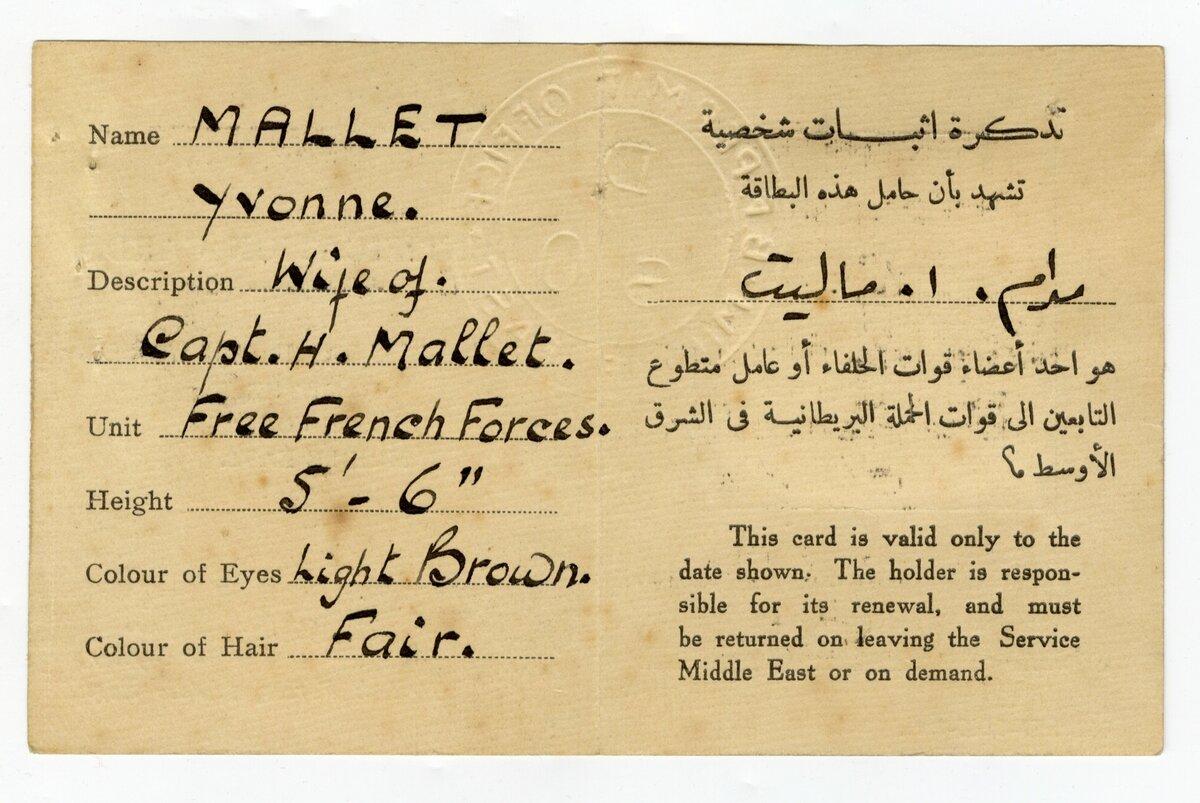 Name MALLET
Yvonne.
Description Wife of.
Capt. H. Mallet.
Unit Free French Forces.
Height 5' - 6"
Colour of Eyes Light Brown.
Colour of Hair Fair.
تذكرة اثبات شخصية
تشهد بأن حامل هذه البطاقة
مدام . ا . ماليت
هو احد أعضاء قوات الحلفاء أو عامل متطوع
التابعين الى قوات الحملة البريطانية فى الشرق
الأوسط
This card is valid only to the
date shown. The holder is respon-
sible for its renewal, and must
be returned on leaving the Service
Middle East or on demand.